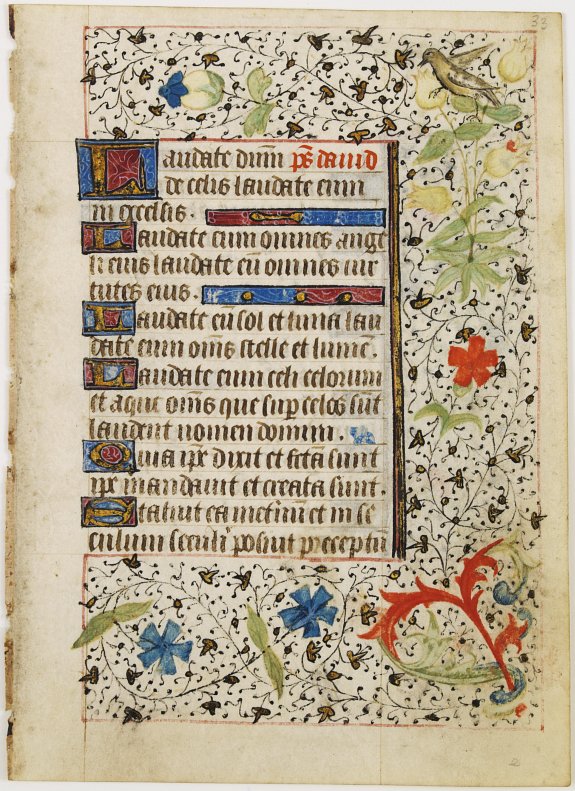 33
Laudate dnm ps dauid
de celis laudate eum
in excelsis.
Laudate eum omnes ange
li eius laudate eu omnes uir
tutes eius.
Laudate eu sol et luna lau
date eum oms stelle et lumē.
Laudate eum celi celorum
et aque oms que sup celos sūt
laudent nomen domini.
Quia ipe dixit et facta sunt
ipe mandauit et creata sunt.
Statuit ea in eternū et in se
culum seculi posuit preceptū